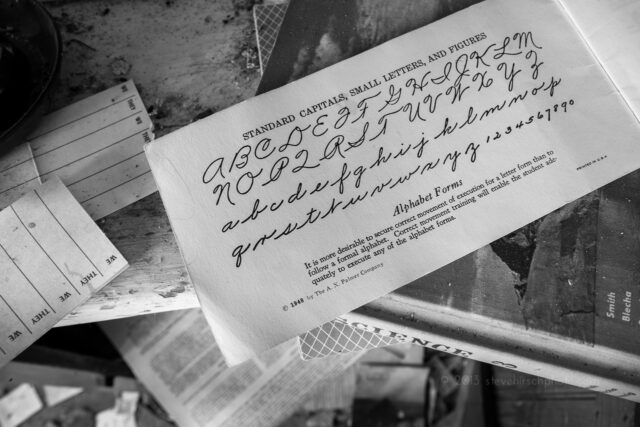 STANDARD CAPITALS, SMALL LETTERS, AND FIGURES
A B C D E F G H I J K L M
N O P Q R S T U V W X Y Z
a b c d e f g h i j k l m n o p
q r s t u v w x y z 1 2 3 4 5 6 7 8 9 0
Alphabet Forms
It is more desirable to secure correct movement of execution for a litter form than to
follow a formal alphabet. Correct movement training will enable the student ade-
quately to execute any of the alphabet forms.
© 1948 by The A. N. Palmer Company
PRINTED IN U.S.A.
WE
THEY
WE
THEY
WE
SCIENCE
Smith
Blecha
© 2013 stevehirschphoto.com